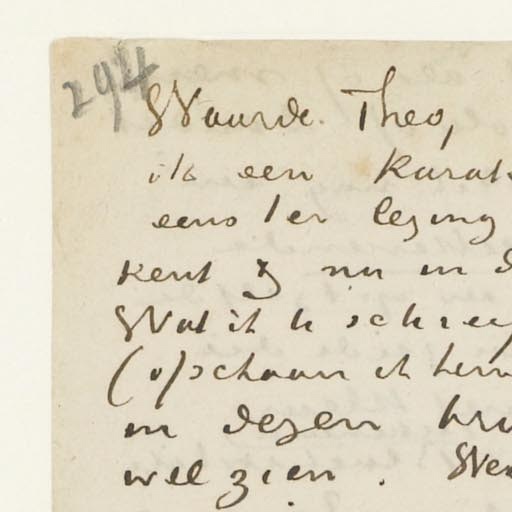 294
Waarde Theo,
ik een karak
eens ter lezing
kent gij nu in d
Wat ik U schreef
(ofschoon ik hem
in dezen bru
wel zien. Wer